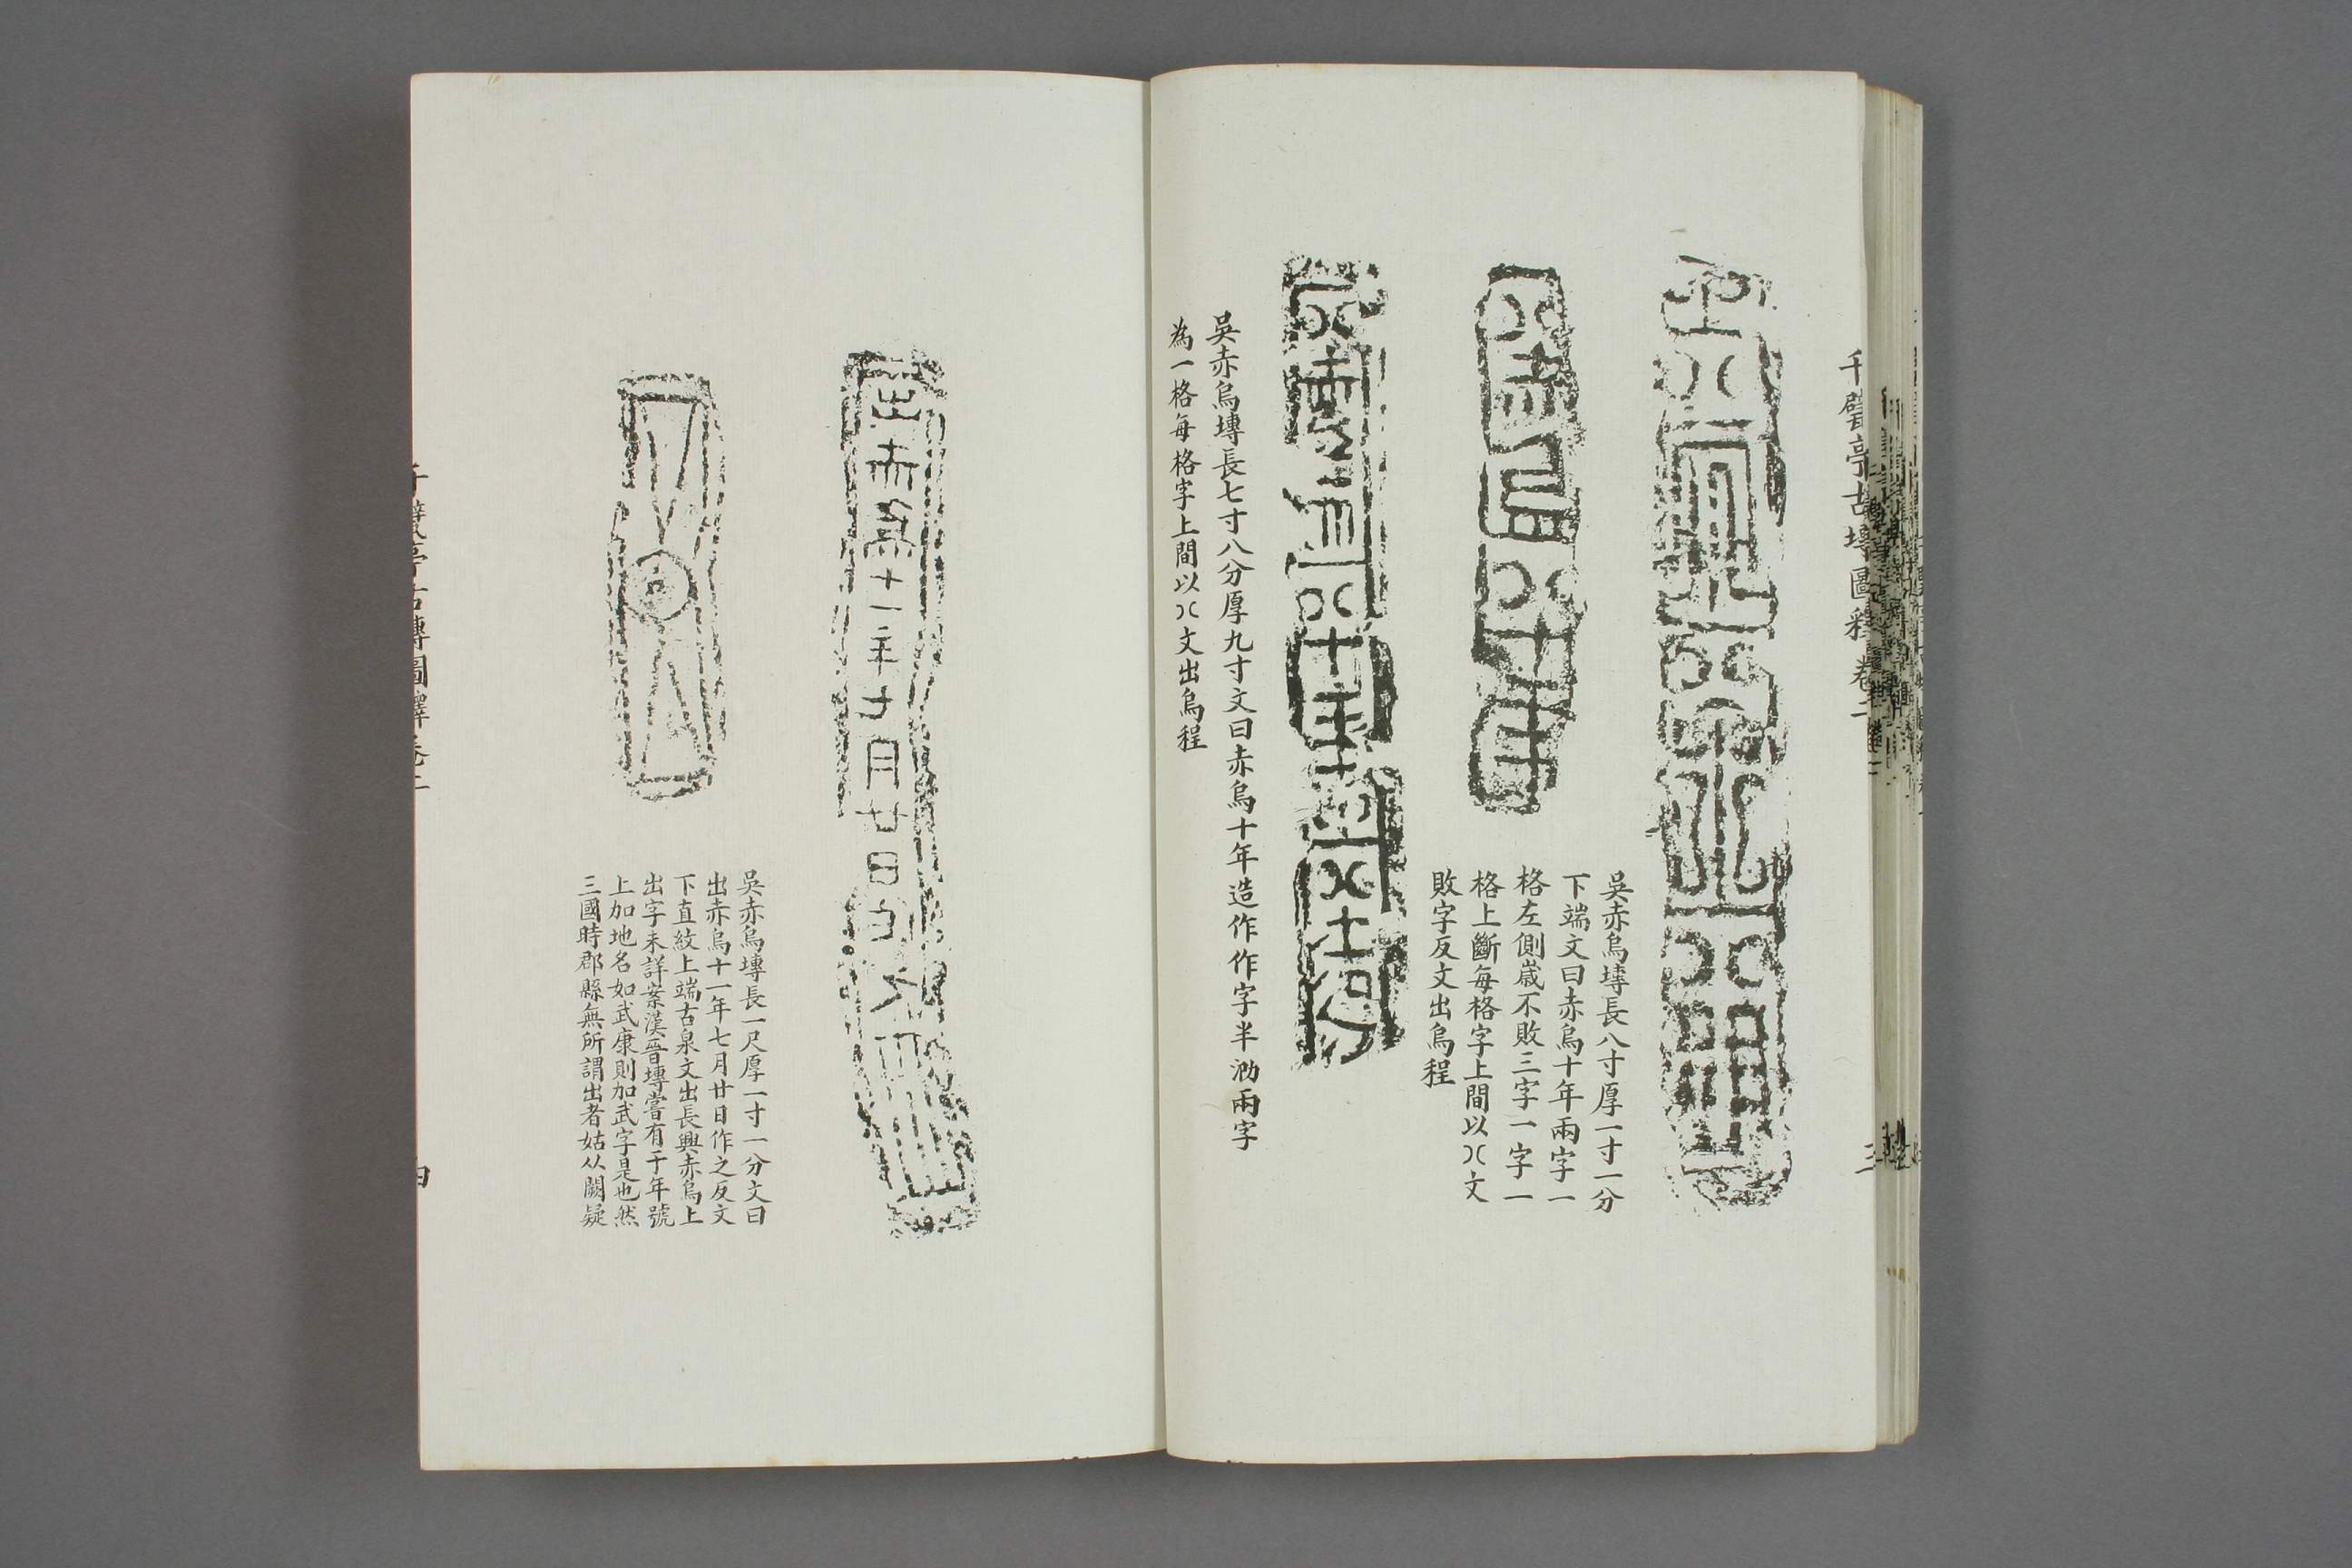 千甓亭古塼圖釋卷二
三
吳赤烏塼長八寸厚一寸一分
下端文曰赤烏十年兩字一
格左側嵗不敗三字一字一
格上斷每格字上間以)(文
敗字反文出烏程
吳赤烏塼長七寸八分厚九寸文曰赤烏十年造作作字半泐兩字
為一格每格字上間以)(文出烏程
出赤烏十一年七月廿日作之
吳赤烏塼長一尺厚一寸一分文曰
出赤烏十一年七月廿日作之反文
下直紋上端古泉文出長興赤烏上
出字未詳案漢晉塼嘗有于年號
上加地名如武康則加武字是也然
三國時郡縣無所謂出者姑从闕疑